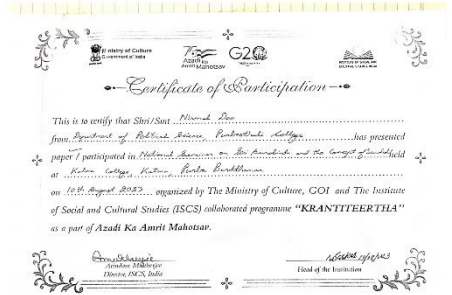 Ministry of Culture
Government of India
75
Azadi Ka
Amrit Mahotsav
G20
INSTITUTE OF SOCIAL AND
CULTURAL STUDIES, INDIA
Certificate of Participation
This is to certify that Shri/Smt Nirmal Das
from Department of Political Science, Purbasthali College has presented
paper / participated in National Seminar on Sri Aurobindo and the Concept of held
at Katwa College, Katwa, Purba Bardhaman
on 10th August 2023 organized by The Ministry of Culture, GOI and The Institute
of Social and Cultural Studies (ISCS) collaborated programme "KRANTITEERTHA"
as a part of Azadi Ka Amrit Mahotsav.
Arindam Mukherjee
Director, ISCS, India
Head of the Institution